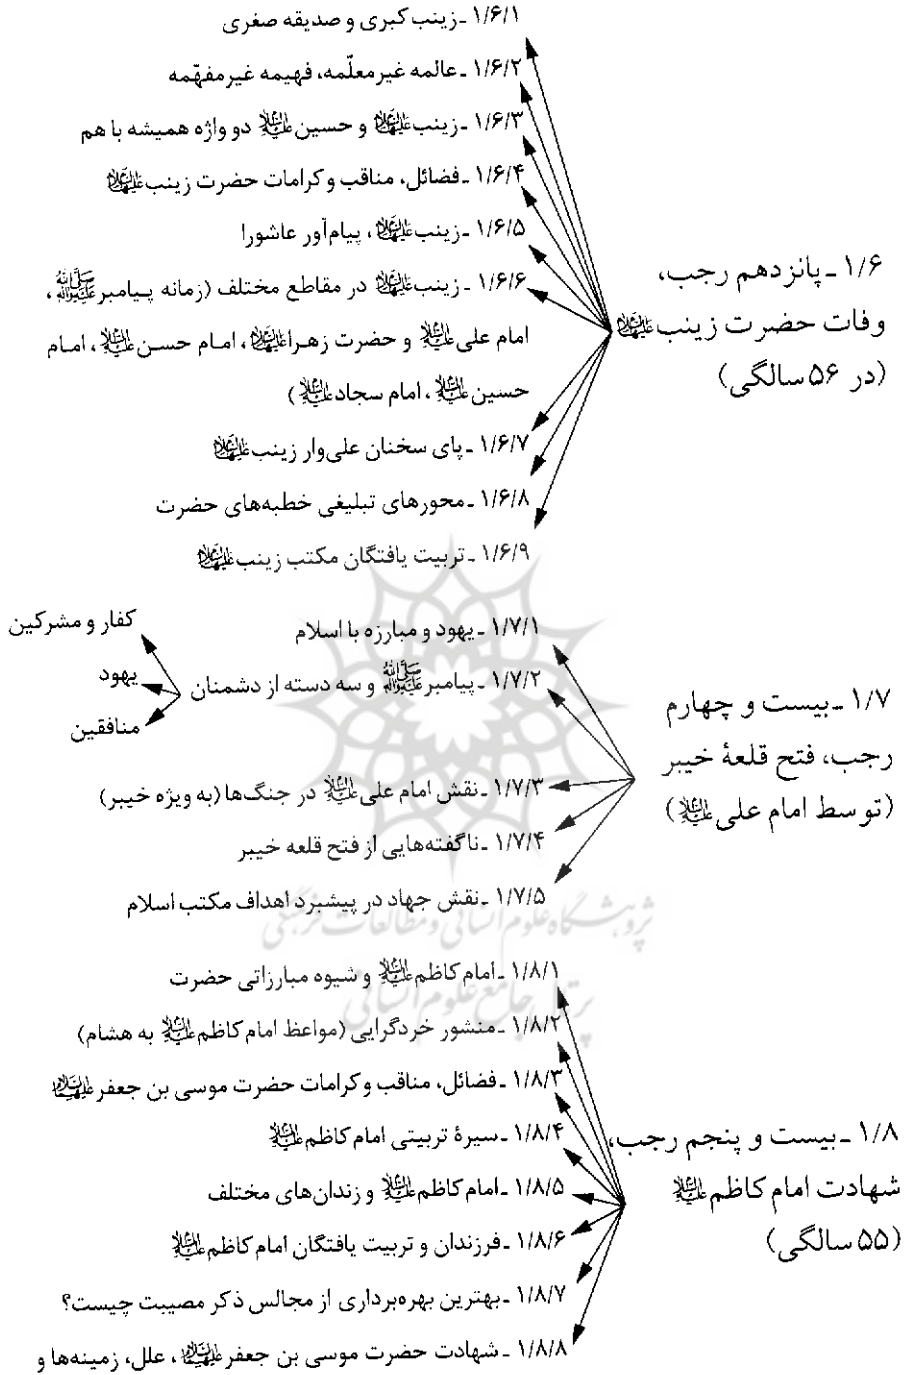 ۱/۶ ـ پانزدهم رجب،
وفات حضرت زینب علیها السلام
(در ۵۶ سالگی)
۱/۶/۱ ـ زینب کبری و صدیقه صغری
۱/۶/۲ ـ عالمه غیرمعلّمه، فهیمه غیرمفهّمه
۱/۶/۳ ـ زینب علیها السلام و حسین علیه السلام دو واژه همیشه با هم
۱/۶/۴ ـ فضائل، مناقب و کرامات حضرت زینب علیها السلام
۱/۶/۵ ـ زینب علیها السلام، پیام‌آور عاشورا
۱/۶/۶ ـ زینب علیها السلام در مقاطع مختلف (زمانه پیامبر صلی الله علیه وآله،
امام علی علیه السلام و حضرت زهرا علیها السلام، امام حسن علیه السلام، امام
حسین علیه السلام، امام سجاد علیه السلام)
۱/۶/۷ ـ پای سخنان علی‌وار زینب علیها السلام
۱/۶/۸ ـ محورهای تبلیغی خطبه‌های حضرت
۱/۶/۹ ـ تربیت یافتگان مکتب زینب علیها السلام
۱/۷ ـ بیست و چهارم
رجب، فتح قلعهٔ خیبر
(توسط امام علی علیه السلام)
۱/۷/۱ ـ یهود و مبارزه با اسلام
۱/۷/۲ ـ پیامبر صلی الله علیه وآله و سه دسته از دشمنان
کفار و مشرکین
یهود
منافقین
۱/۷/۳ ـ نقش امام علی علیه السلام در جنگ‌ها (به ویژه خیبر)
۱/۷/۴ ـ ناگفته‌هایی از فتح قلعه خیبر
۱/۷/۵ ـ نقش جهاد در پیشبرد اهداف مکتب اسلام
پژوهشگاه علوم انسانی و مطالعات فرهنگی
پرتال جامع علوم انسانی
۱/۸ ـ بیست و پنجم رجب،
شهادت امام کاظم علیه السلام
(۵۵ سالگی)
۱/۸/۱ ـ امام کاظم علیه السلام و شیوه مبارزاتی حضرت
۱/۸/۲ ـ منشور خردگرایی (مواعظ امام کاظم علیه السلام به هشام)
۱/۸/۳ ـ فضائل، مناقب و کرامات حضرت موسی بن جعفر علیهما السلام
۱/۸/۴ ـ سیرهٔ تربیتی امام کاظم علیه السلام
۱/۸/۵ ـ امام کاظم علیه السلام و زندان‌های مختلف
۱/۸/۶ ـ فرزندان و تربیت یافتگان امام کاظم علیه السلام
۱/۸/۷ ـ بهترین بهره‌برداری از مجالس ذکر مصیبت چیست؟
۱/۸/۸ ـ شهادت حضرت موسی بن جعفر علیهما السلام، علل، زمینه‌ها و